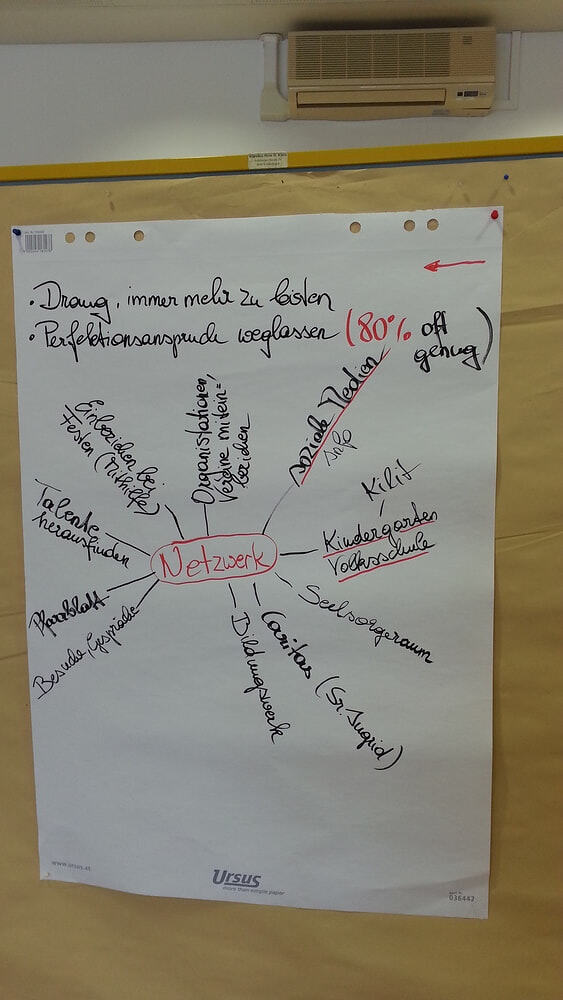 • Drang, immer mehr zu leisten
• Perfektionsanspruch weglassen (80% oft
genug)
Soziale Medien
Info
KiLit
Kindergarten
Volksschule
Seelsorgeraum
Caritas (Sr. Ingrid)
Bildungswerk
Besuche, Gespräche
Pfarrblatt
Talente
herausfinden
Einbeziehen bei
Festen (Mithilfe)
Organistationen,
Vereine mitein=
beziehen
Netzwerk
www.ursus.at
Ursus
more than simple paper
036442